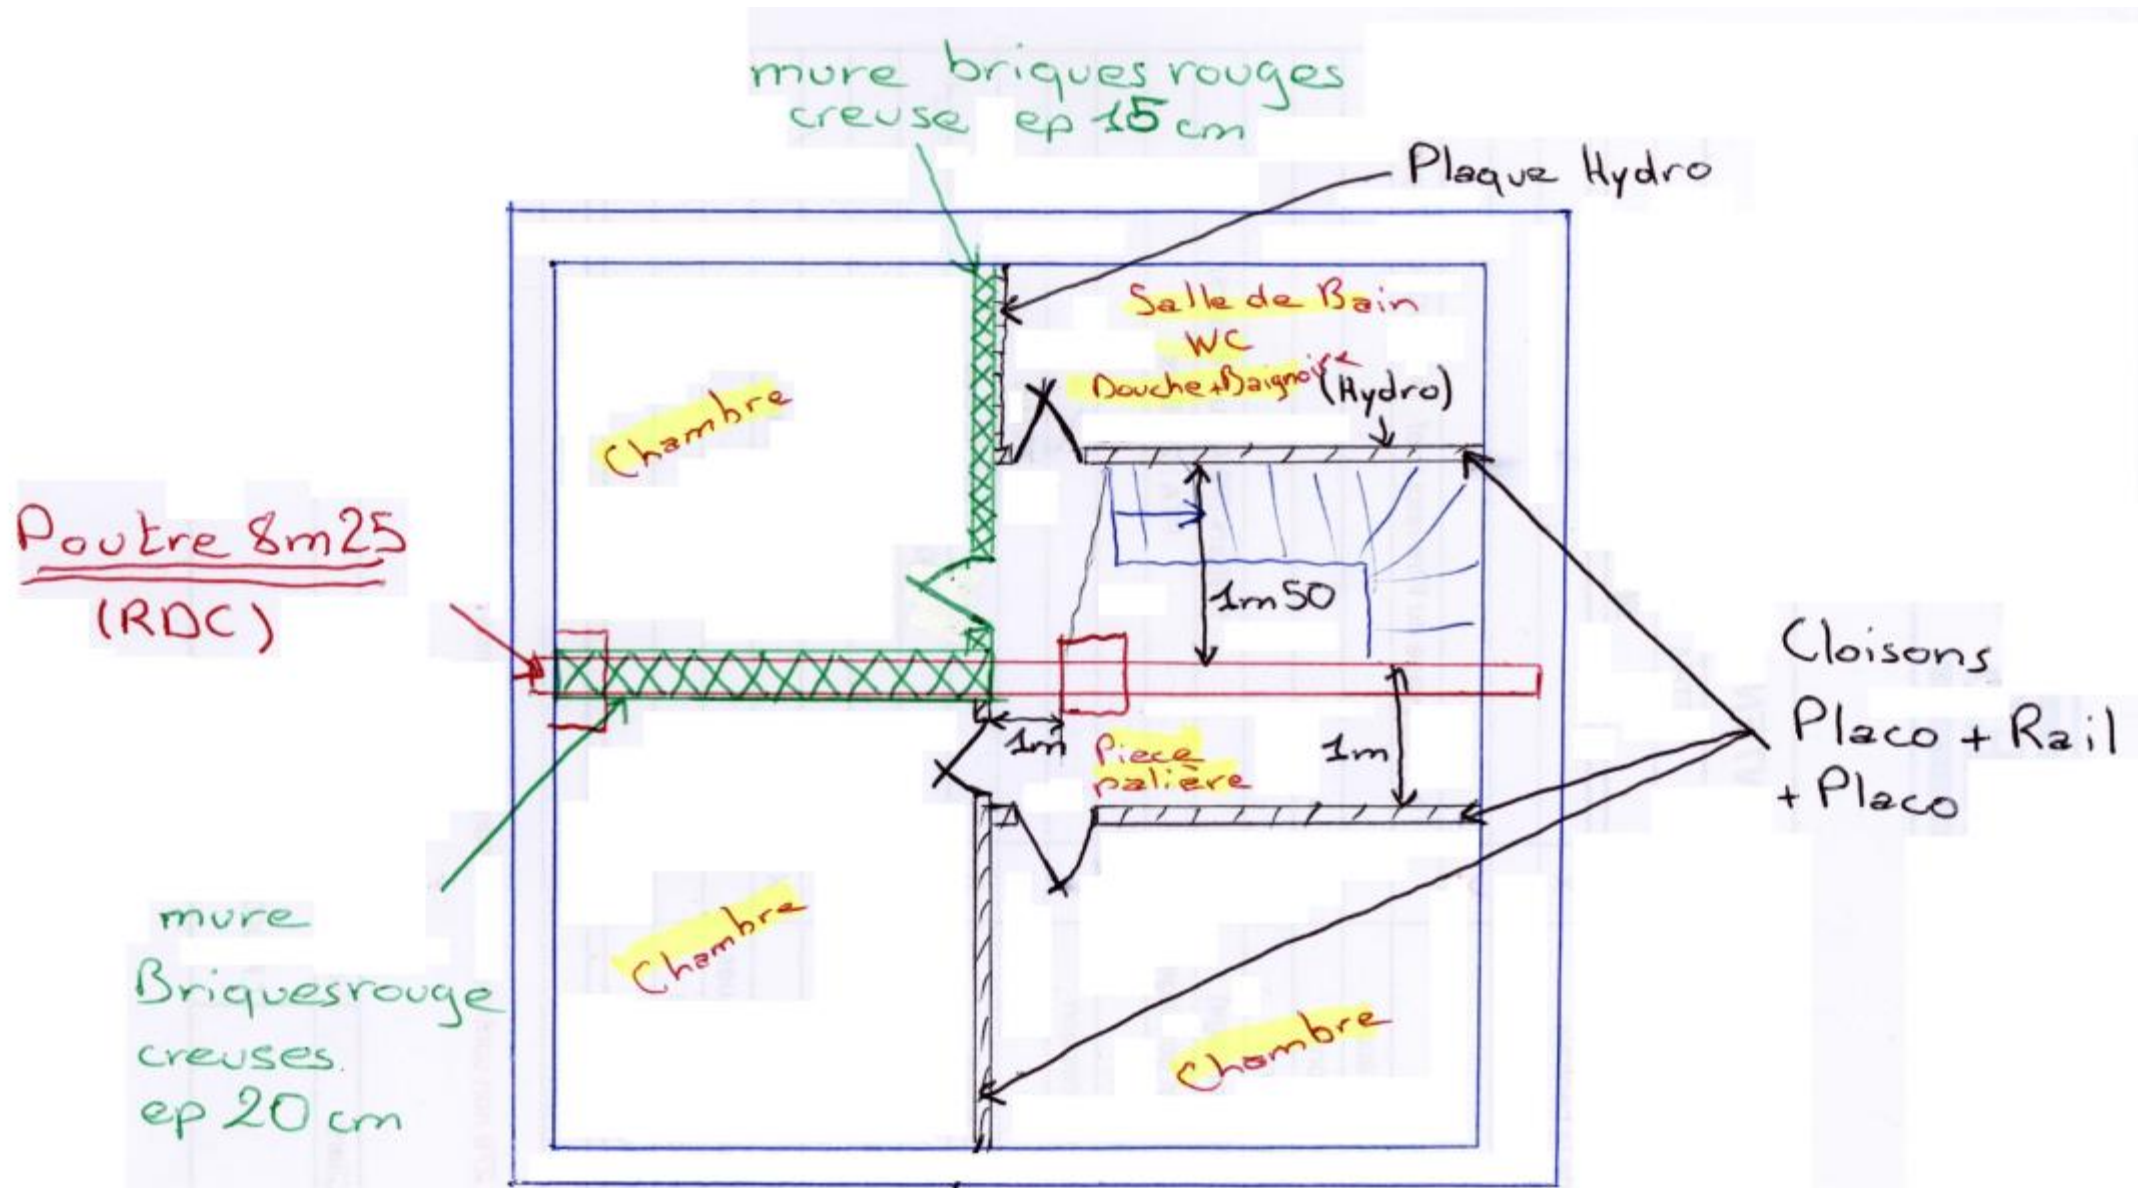 mure briques rouges
creuse ep 15 cm
Plaque Hydro
Salle de Bain
WC
Douche+Baignoire
(Hydro)
Chambre
Poutre 8m25
(RDC)
1m50
Cloisons
Placo + Rail
+ Placo
1m
Piece
palière
1m
mure
Briquesrouge
creuses.
ep 20 cm
Chambre
Chambre